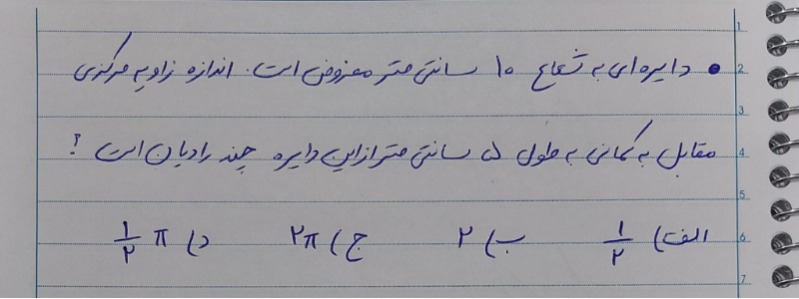 • دایره‌ای به شعاع ۱۰ سانتی متر مفروض است. اندازه زاویه مرکزی
مقابل به کمانی به طول ۵ سانتی متر از این دایره چند رادیان است؟
الف) ۱/۲ ب) ۲ ج) ۲π د) ۱/۲ π
1
2
3
4
5
6
7